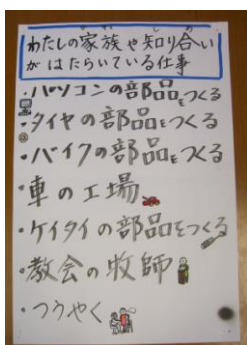 わたしの家族や知り合い
がはたらいている仕事
・パソコンの部品をつくる
・タイヤの部品をつくる
・バイクの部品をつくる
・車の工場
・ケイタイの部品をつくる
・教会の牧師
・つうやく